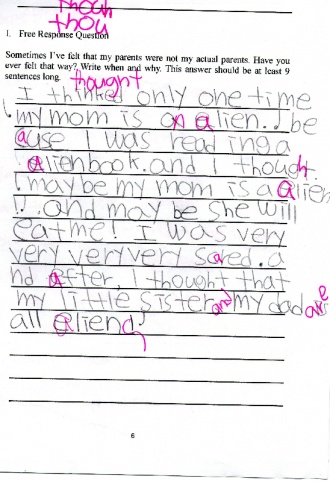 thoah
thou
1. Free Response Question
Sometimes I've felt that my parents were not my actual parents. Have you
ever felt that way? Write when and why. This answer should be at least 9
sentences long.
thought
I thinked only one time
my mom is an alien. be
ause I was reading a
alienbook. and I though.
maybe my mom is a alien
!. and may be she will
eatme! I was very
very veryvery scared. a
nd after, I thought that
my little sister and my dad are
all aliend,
6